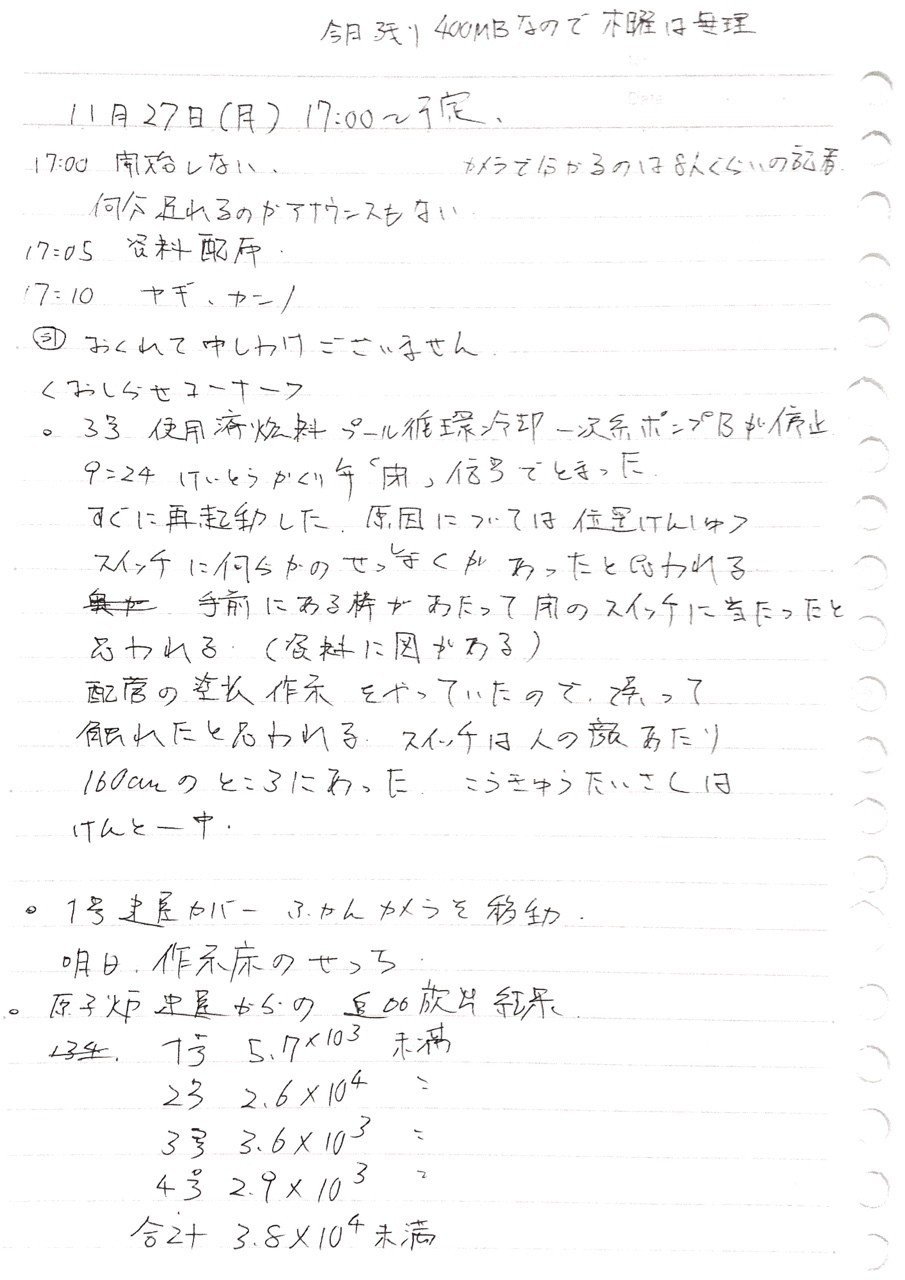 今月残り400MBなので木曜は無理
11月27日(月) 17:00〜予定、
17:00 開始しない、 カメラで分かるのは8人くらいの記者
何分遅れるのかアナウンスもない
17:05 資料配布.
17:10 ヤギ、カンノ
おくれて申しわけございません
<おしらせコーナー>
○ 3号 使用済燃料プール循環冷却一次系ポンプBが停止
9:24 けいとうかくり弁「閉」信号でとまった.
すぐに再起動した. 原因については位置けんしゅつ
スイッチに何らかのせっしょくがあったと思われる
手前にある棒があたって閉のスイッチに当たったと
思われる. (資料に図がある)
配管の塗装作業をやっていたので、誤って
触れたと思われる. スイッチは人の顔あたり
160cmのところにあった. こうきゅうたいさくは
けんとー中.
○ 1号建屋カバー ふかんカメラを移動.
明日、作業床のせっち.
○ 原子炉建屋からの 放出結果
134. 1号 5.7×10³ 未満
2号 2.6×10⁴ 〃
3号 3.6×10³ 〃
4号 2.9×10³ 〃
合計 3.8×10⁴ 未満